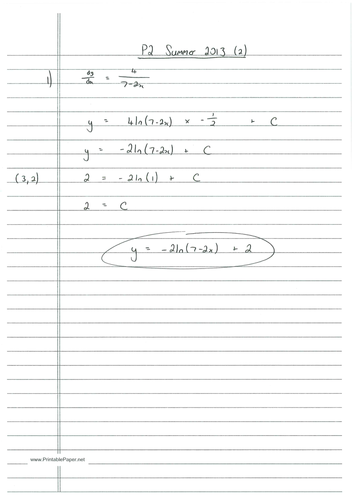 P2 Summer 2013 (2)
1) dy/dx = 4/(7-2x)
y = 4ln(7-2x) × -1/2 + C
y = -2ln(7-2x) + C
(3,2) 2 = -2ln(1) + C
2 = C
y = -2ln(7-2x) + 2
www.PrintablePaper.net